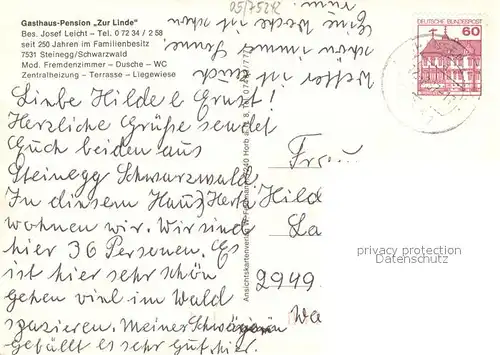 Gasthaus-Pension „Zur Linde"
Bes. Josef Leicht – Tel. 0 72 34 / 2 58
seit 250 Jahren im Familienbesitz
7531 Steinegg/Schwarzwald
Mod. Fremdenzimmer – Dusche – WC
Zentralheizung – Terrasse – Liegewiese
05/75212
DEUTSCHE BUNDESPOST
60
Liebe Hilde & Ernst!
Herzliche Grüße sendet
Euch beiden aus
Steinegg Schwarzwald
In diesem Haus Herta
wohnen wir. Wir sind
hier 36 Personen. Es
ist hier sehr schön
gehen viel im Wald
spazieren. Meiner
gefällt es sehr gut hier.
Wetter ist auch
schön Sonne.
Eine Woche ist
Ansichtskartenverlag W.
Frau
Hild
La
2949
Wa
privacy protection
Datenschutz